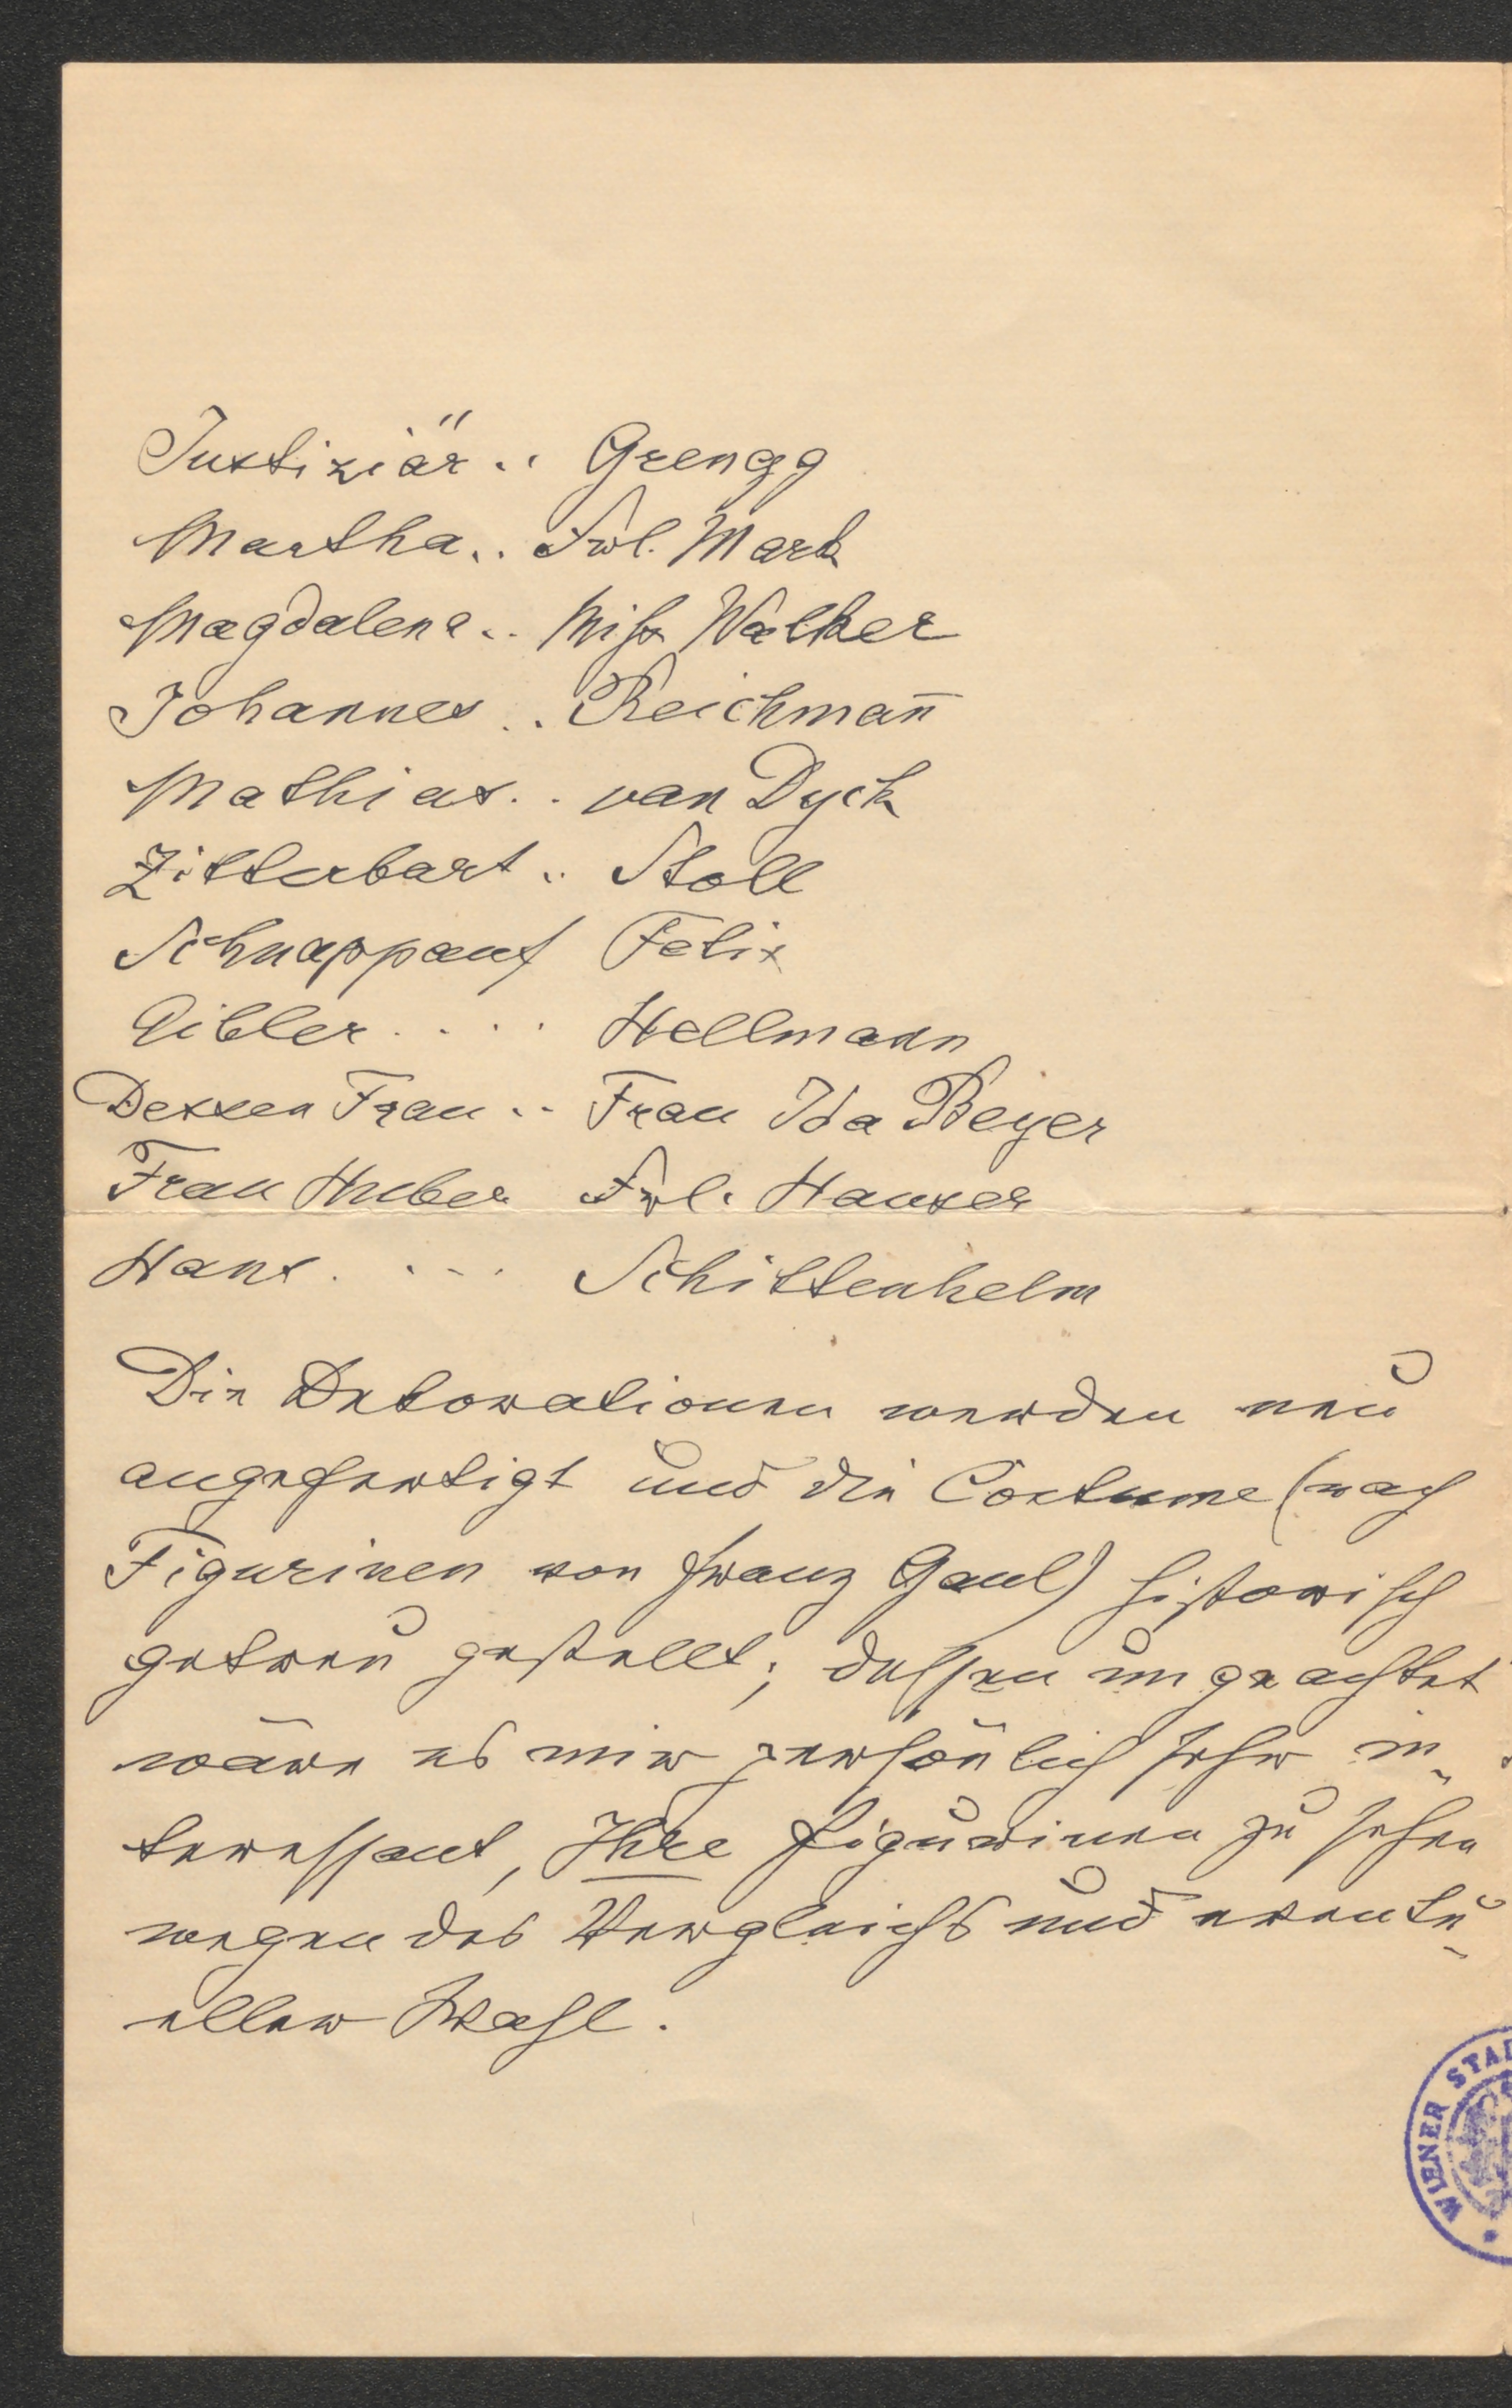 Justiziär .. Grengg
Martha .. Frl. Mark
Magdalena .. Miss Walker
Johannes .. Reichman̄
Mathias .. van Dyck
Zitterbart .. Stoll
Schnappauf Felix
Aibler .... Hellmann
Dessen Frau .. Frau Ida Beyer
Frau Huber Frl. Hauser
Hans .... Schittenhelm
Die Dekorationen werden neu
angefertigt und die Costume (nach
Figurinen von Franz Gaul) historisch
getreu gestellt; dessen ungeachtet
wäre es mir persön̄lich sehr in-
teressant, Ihre Figurinen zu sehen
wegen des Vergleichs und eventu-
eller Wahl.
WIENER STAD